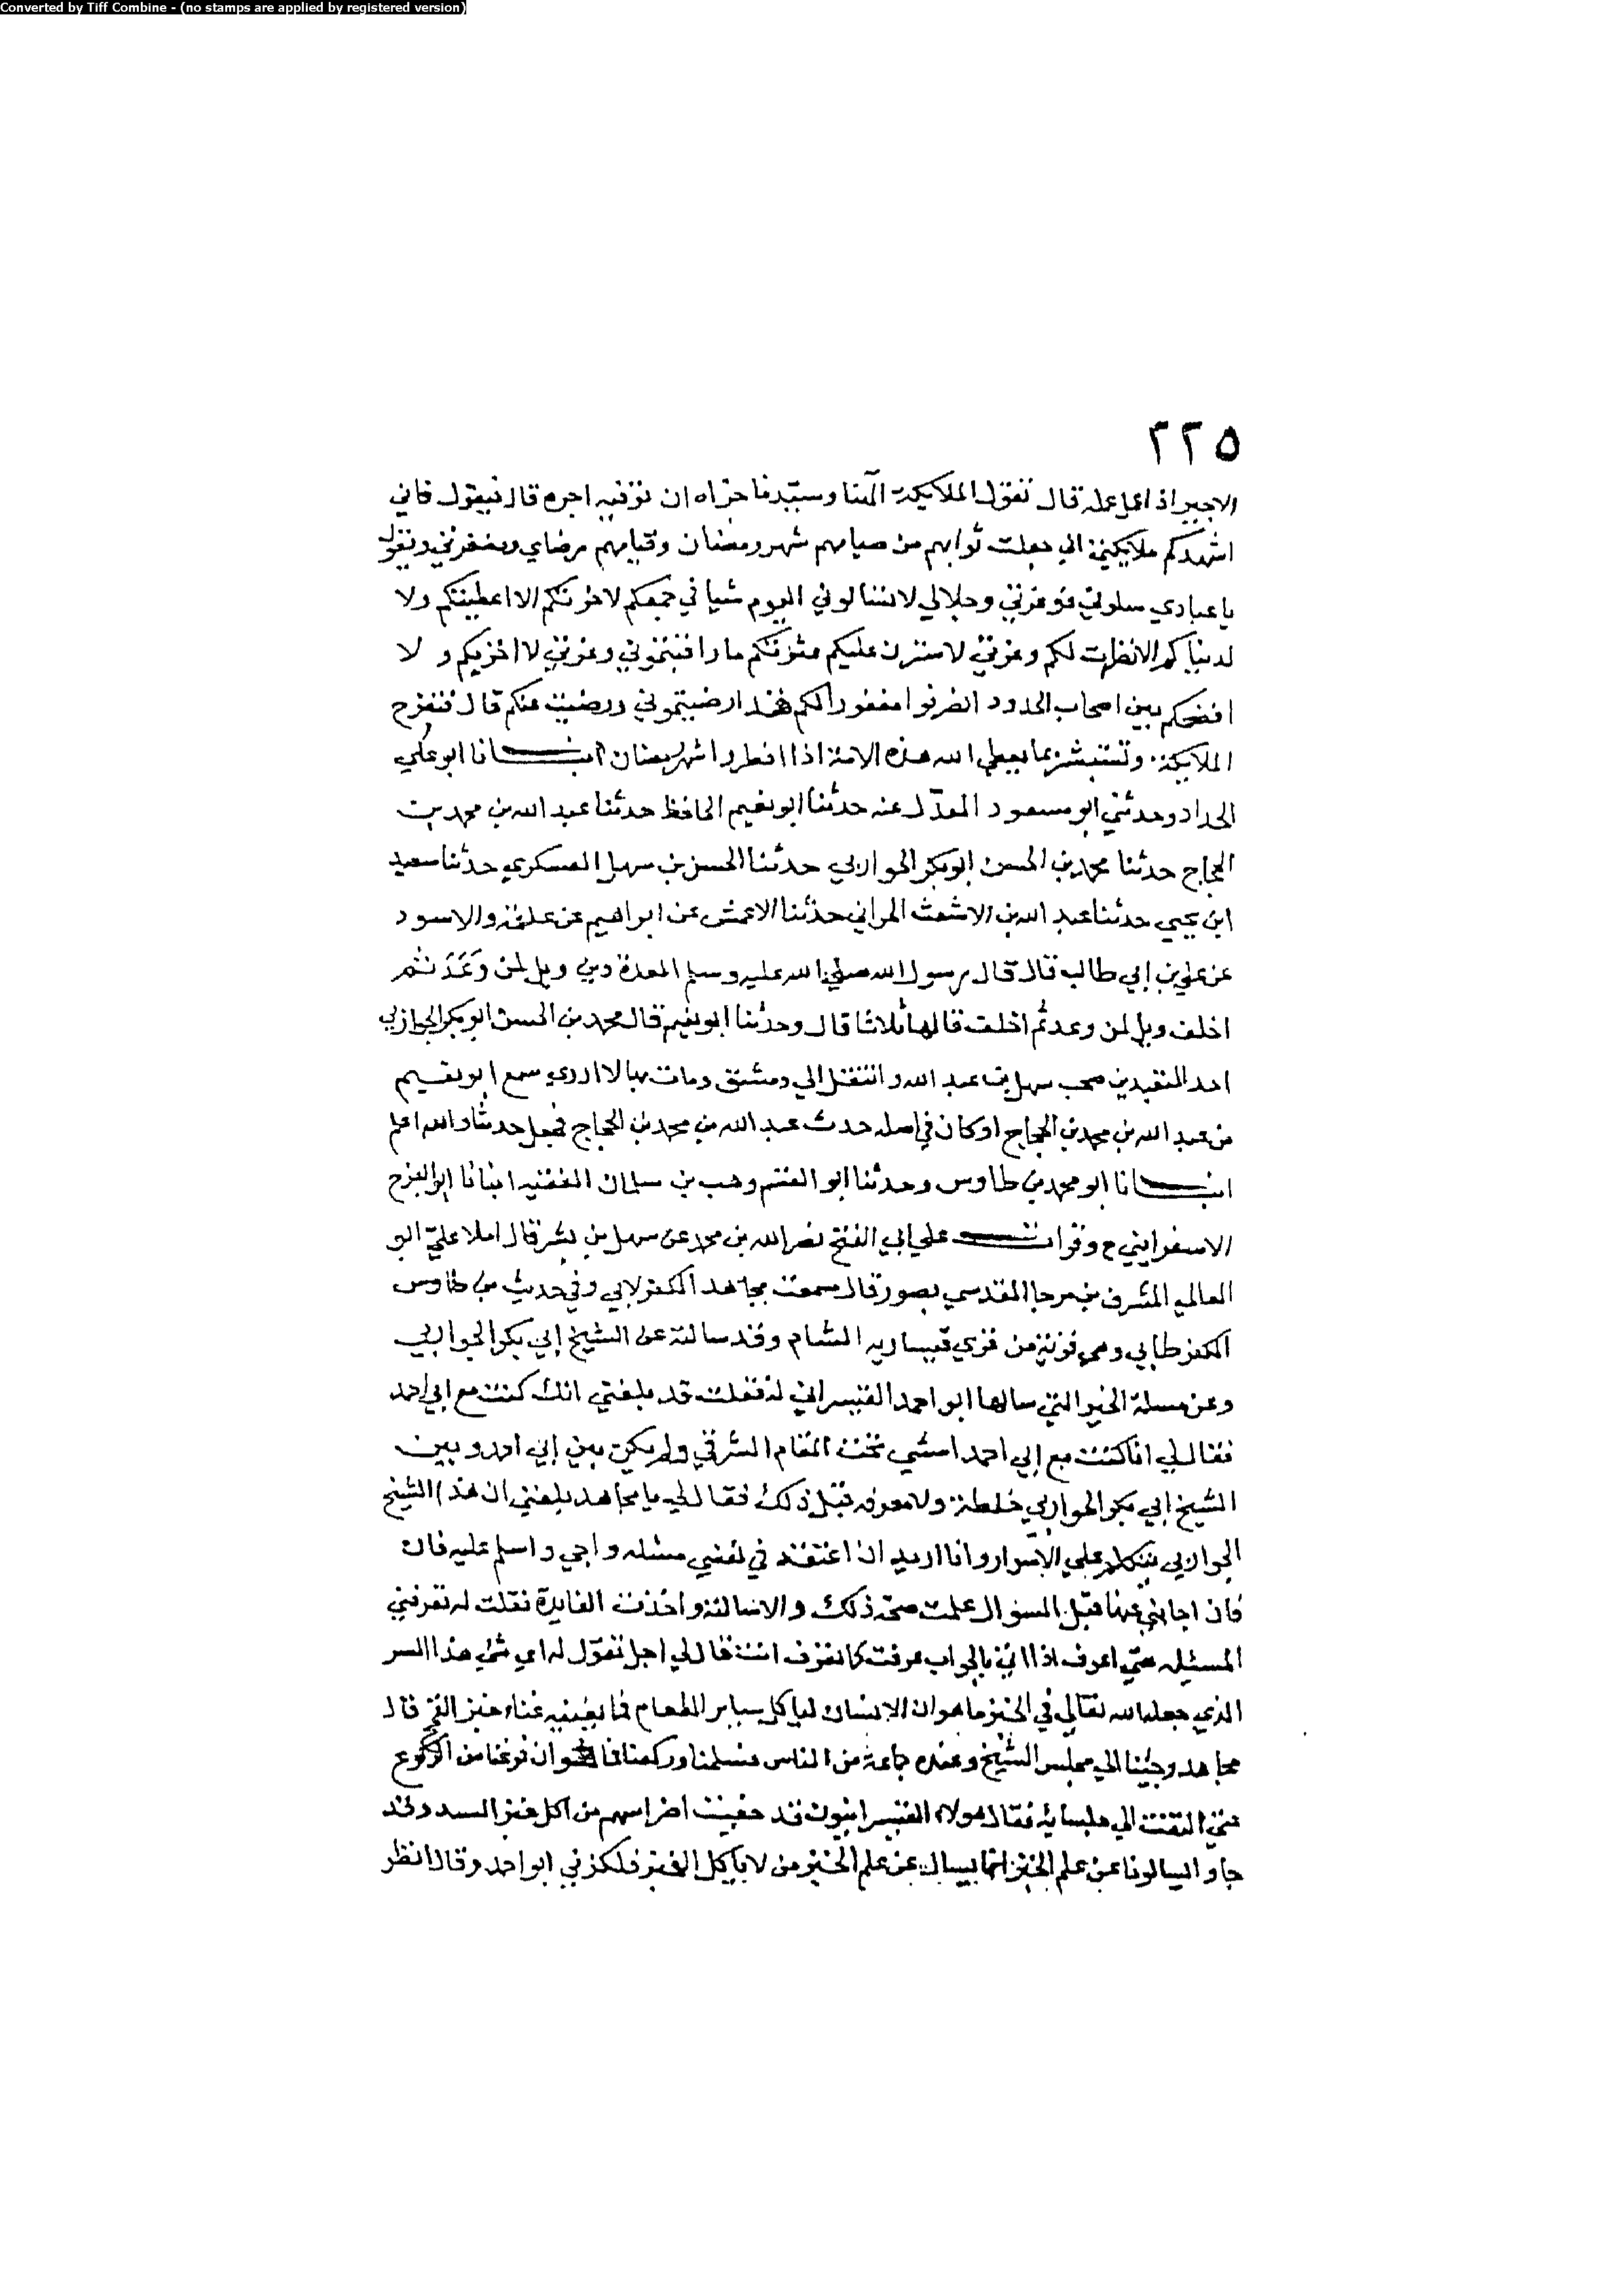 Converted by Tiff Combine - (no stamps are applied by registered version)
٢٢٥
الاجير اذا عمل عمله قال تقول الملايكة الهنا وسيدنا جزاه ان توفيه اجره قال فيقول فاني
اشهدكم ملايكتي اني جعلت ثوابهم من صيامهم شهر رمضان وقيامهم رضاي ومغفرتي ويقول
يا عبادي سلوني فوعزتي وجلالي لا تسالوني اليوم شيا في جمعكم لاخرتكم الا اعطيتكم ولا
لدنياكم الا نظرت لكم وعزتي لاسترن عليكم عثرتكم ما راقبتموني وعزتي لا اخزيكم و لا
افضحكم بين اصحاب الحدود انصرفوا مغفورا لكم قد ارضيتموني ورضيت عنكم قال فتفرح
الملايكة وتستبشر بما يعطي الله هذه الامة اذا افطروا شهر رمضان انبـــانا ابو علي
الحداد وحدثني ابو مسعود المعدل عنه حدثنا ابو نعيم الحافظ حدثنا عبد الله بن محمد بن
الحجاج حدثنا محمد بن الحسن ابو بكر الجواربي حدثنا الحسن بن سهل العسكري حدثنا سعيد
ابن يحيي حدثنا عبد الله بن الاشعث الحراني حدثنا الاعمش عن ابراهيم عن علقمة والاسود
عن علي بن ابي طالب قال قال رسول الله صلي الله عليه وسلم العدة دين ويل لمن وَعَدَ ثم
اخلف ويل لمن وعد ثم اخلف قالها ثلاثا قال وحدثنا ابو نعيم قال محمد بن الحسن ابو بكر الجواربي
احد المتعبدين صحب سهل بن عبد الله وانتقل الي دمشق ومات بها لا ادري سمع ابو نعيم
من عبد الله بن محمد بن الحجاج او كان في اصله حدث عبد الله بن محمد بن الحجاج فجعل حدثنا والله اعلم
انبـــانا ابو محمد بن طاوس وحدثنا ابو القسم وهب بن سلمان الفقيه انبانا ابو الفرج
الاسفراييني ح وقرات علي ابي الفتح نصر الله بن محمد عن سهل بن بشر قال املا علي ابو
المعالي المشرف بن مرجا المقدسي بصور قال سمعت مجاهد الكفرلابي وفي حديث بن طاوس
الكفرطابي وهي قرية من قري قيسارية الشام وقد سالته عن الشيخ ابي بكر الجواربي
وعن مسلة الخبز التي سالها ابو احمد القيسراني له فقلت قد بلغني انك كنت مع ابي احمد
فقال لي انا كنت مع ابي احمد امشي تحت المقام الشرقي ولم يكن بين ابي احمد وبين
الشيخ ابي بكر الجواربي خلطة ولا معرفه قبل ذلك فقال لي يا مجاهد بلغني ان هذا الشيخ
الجواربي يتكلم علي الاسرار وانا اريد ان اعتقد في نفسي مسئله واجي واسلم عليه فان
فان اجابني عنها قبل السؤال علمت صحة ذلك والا سالته واخذت الفايدة فقلت له تعرفني
المسئله حتي اعرف اذا اتي بالجواب عرفت كما تعرف انت قال لي اجل تقول له اي شي هذا السر
الذي جعله الله تعالي في الخبز ما هو ان الانسان لياكل ساير الطعام فما يغنيه غناء خبز القمح قال
مجاهد وجئنا الي مجلس الشيخ وعنده جماعة من الناس فسلمنا وركعنا فما هو ان فرغنا من الركوع
حتي التفت الي جلسائه فقال هولاء القيسرانيون قد حفيت اضراسهم من اكل خبز السميد وقد
جاوا ليسالونا عن علم الخبز انما يسال عن علم الخبز من لا ياكل الخبز فلكزني ابو احمد وقال انظر